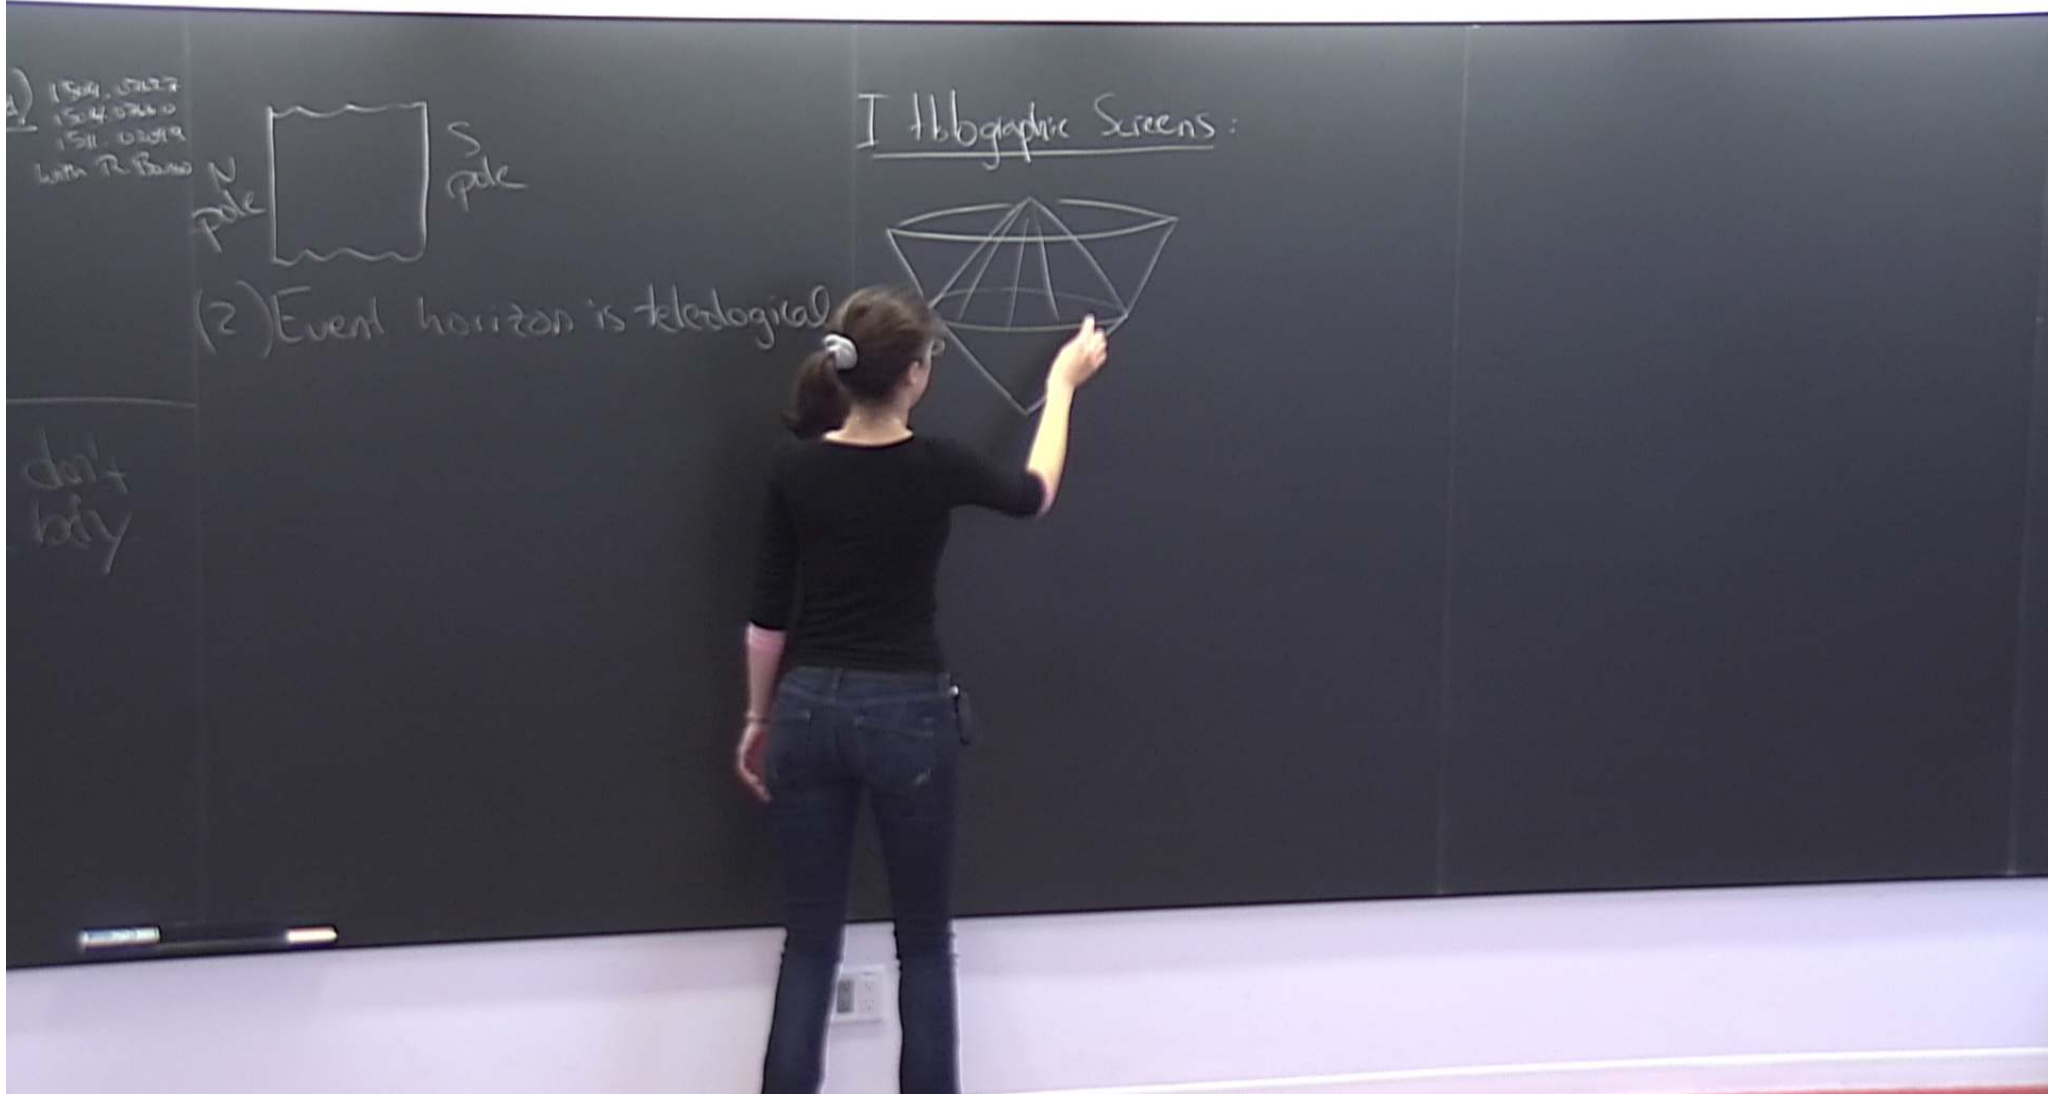 1504.07627
1504.07660
1511.02099
with R. Bousso
N
pole
S
pole
(2) Event horizon is teleological
don't
bdry
I Holographic Screens: